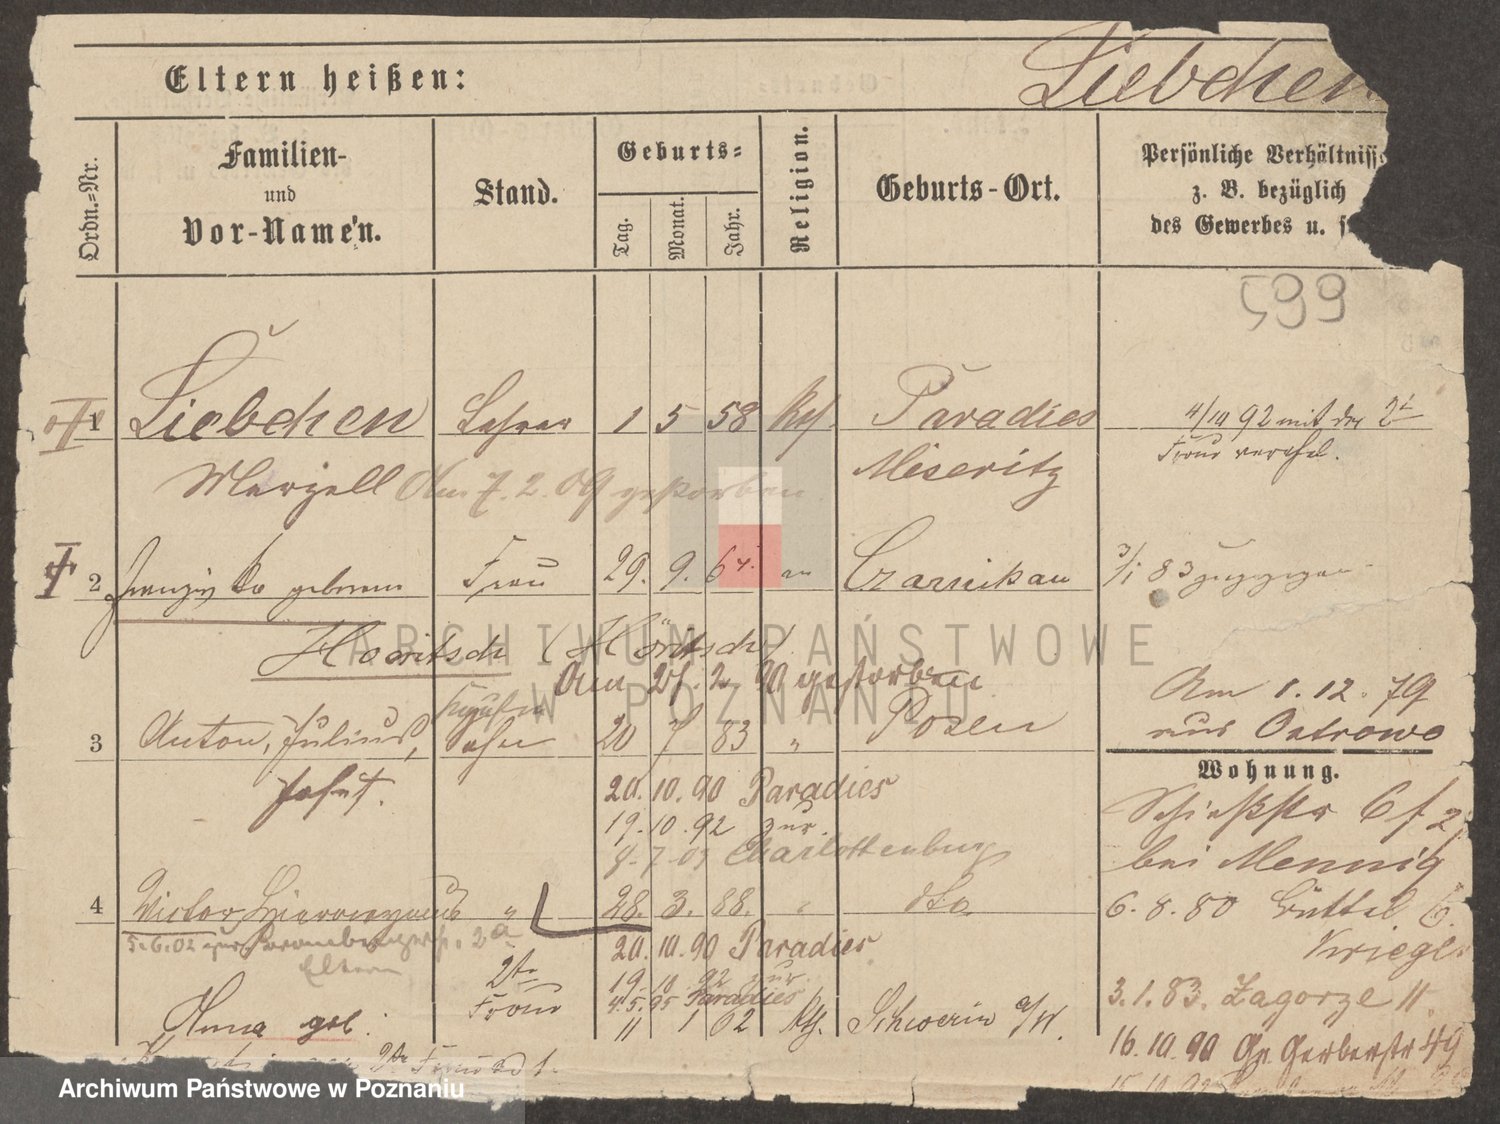 Eltern heißen: Liebchen
Ordn.-Nr.
Familien- und Vor-Namen.
Stand.
Geburts-
Tag. Monat. Jahr.
Religion.
Geburts-Ort.
Persönliche Verhältniss
z. B. bezüglich
des Gewerbes u. s
599
1 Liebchen Lehrer 1 5 58 Kth. Paradies 4/10 92 mit der 2t
Frau verehel.
Marzell Am 7. 2. 09 gestorben Meseritz
2 geborene Frau 29. 9. 64. Czarnikau 3/1 83 zugezogen
Hoeritsch (Höritsch)
Am 21. 2. 90 gestorben
Am 1. 12. 79
aus Ostrowo
3 Anton, Julius, Sohn 20 7 83 " Posen
Wohnung.
20. 10. 90 Paradies
19. 10. 92 zur
8. 7. 09 Charlottenburg
Schießstr 6 f 2
bei Mennig
4 Victor Hieronymus " 28. 3. 88. " dto.
6. 8. 80 Büttel
Kriegl
5.6.02 zur 2a
Eltern
20. 10. 90 Paradies
19. 10. 92 zur
4. 5. 95 Paradies
3. 1. 83. Zagorze 11.
2te
Frau
Anna geb. 11 1 62 Kth. Schwerin a/W.
16. 10. 90 Gr Gerberstr 49
2te Frau ad 1.
ARCHIWUM PAŃSTWOWE
W POZNANIU
Archiwum Państwowe w Poznaniu